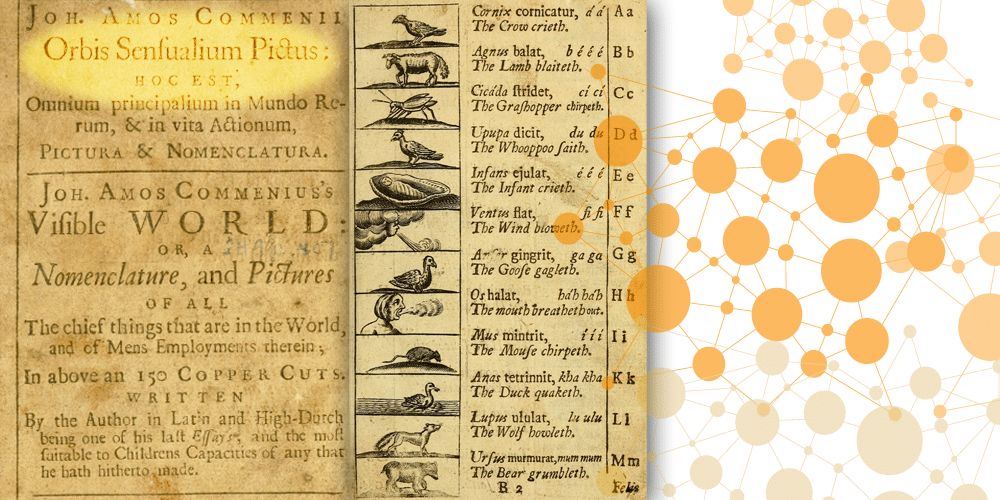 JOH. AMOS COMMENII
Orbis Senſualium Pictus:
HOC EST,
Omnium principalium in Mundo Re-
rum, & in vita Actionum,
PICTURA & NOMENCLATURA.
JOH. AMOS COMMENIUS'S
Viſible WORLD:
OR, A
Nomenclature, and Pictures
OF ALL
The chief things that are in the World,
and of Mens Employments therein;
In above an 150 COPPER CUTS.
WRITTEN
By the Author in Latin and High-Dutch
being one of his laſt Eſſays, and the moſt
ſuitable to Childrens Capacities of any that
he hath hitherto made.
Cornix cornicatur, á á A a
The Crow crieth.
Agnus balat, b é é é B b
The Lamb blaiteth.
Cicáda ſtridet, ci cí C c
The Graſhopper chirpeth.
Upupa dicit, du du D d
The Whooppoo ſaith.
Infans ejulat, é é é E e
The Infant crieth.
Ventus flat, fi fi F f
The Wind bloweth.
gingrit, ga ga G g
The Gooſe gagleth.
Os halat, há'h há'h H h
The mouth breatheth out.
Mus mintrit, í í í I i
The Mouſe chirpeth.
Anas tetrinnit, kha kha K k
The Duck quaketh.
Lupus ululat, lu ulu L l
The Wolf howleth.
Urſus murmurat, mum mum M m
The Bear grumbleth.
B 2 Felis